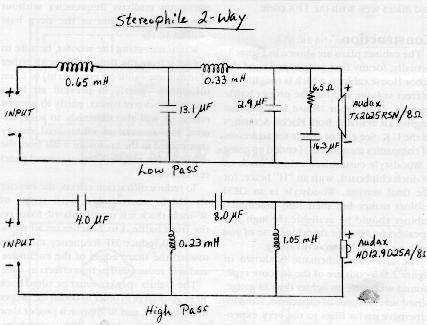 Stereophile 2-Way
0.65 mH
0.33 mH
+
INPUT
-
13.1 µF
2.9 µF
6.5 Ω
16.3 µF
+
-
Audax
TX2025RSN/8Ω
Low Pass
+
INPUT
-
4.0 µF
8.0 µF
0.23 mH
1.05 mH
+
-
Audax
HD12.9D25A/8Ω
High Pass